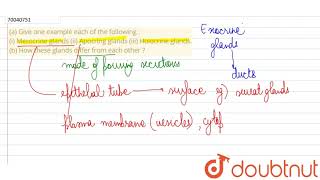 70040751
(a) Give one example each of the following :
(i) Merocrine glands (ii) Apocrine glands (iii) Holocrine glands.
(b) How these glands differ from each other ?
Exocrine
glands
↓
ducts
mode of pouring secretions
epithelial tube → surface eg) sweat glands
plasma membrane (vesicles),
doubtnut